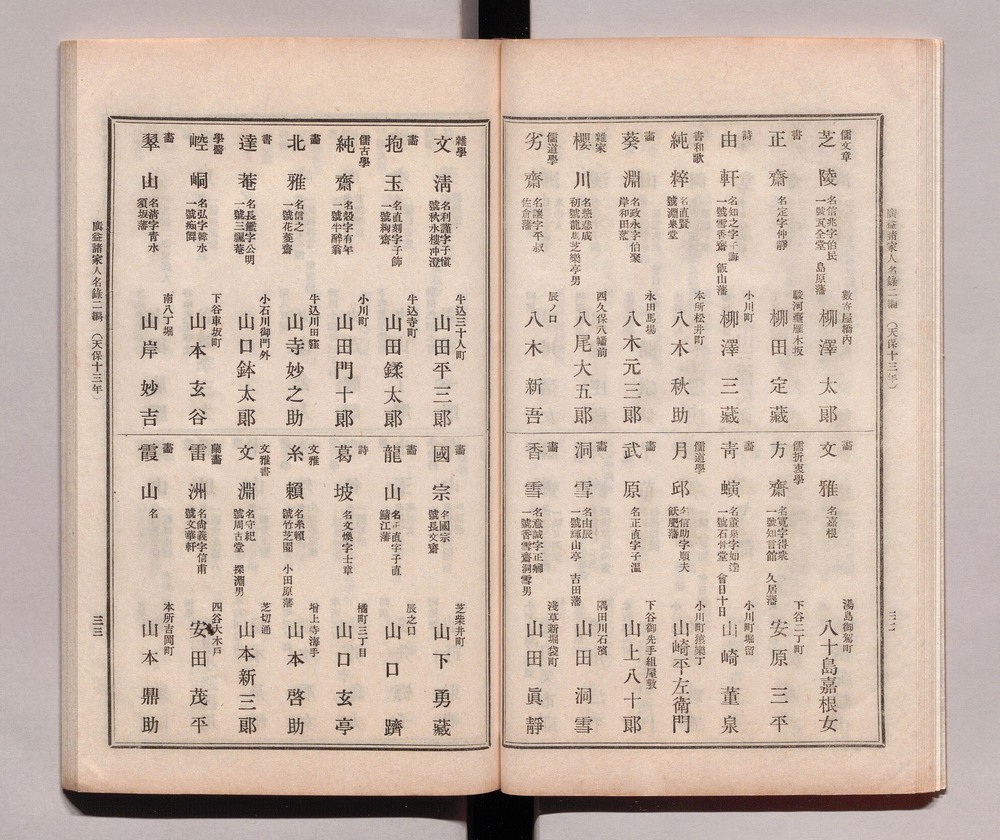 廣益諸家人名錄二編 (天保十三年)
三二
儒文章
芝陵 名信兆字伯民 一號五全堂 島原藩 數寄屋橋內 柳澤太郎
書
正齋 名定字仲靜 駿河臺雁木坂 柳田定藏
詩
由軒 名知之字 一號雪香齋 飯山藩 小川町 柳澤三藏
書和歌
純粹 名直賢 號淵泉堂 本所松井町 八木秋助
畵
葵淵 名政永字伯聚 岸和田藩 永田馬場 八木元三郞
雜家
櫻川 名慈悲成 初號 芝樂亭男 西久保八幡前 八尾大五郞
儒道學
劣齋 名讓字平叔 佐倉藩 辰ノ口 八木新吾
畵
文雅 名嘉根 湯島御駕町 八十島嘉根女
儒折衷學
方齋 名寬字得衆 一號知言館 久居藩 下谷二丁町 安原三平
畵
靑螾 名董泉字知澄 一號石骨堂 會日十日 小川町堀留 山崎董泉
儒道學
月邱 名信助字順夫 飫肥藩 小川町猿樂丁 山崎平左衞門
畵
武原 名正直字子溫 下谷御先手組屋敷 山上八十郞
畵
洞雪 名由辰 一號輝山亭 吉田藩 隅田川石濱 山田洞雪
畵
香雪 名意誠字正 一號香雪齋洞雪男 淺草新堀袋町 山田眞靜
雜學
文淸 名利謹字子愼 號秋水樓冲澄 牛込三十人町 山田平三郞
畵
抱玉 名直刻字子師 一號絢齋 牛込寺町 山田鍒太郞
儒古學
純齋 名毅字有年 一號半醉翁 小川町 山田門十郞
畵
北雅 名信之 一號花菱齋 牛込川田窪 山寺妙之助
書
達菴 名長鑑字公明 一號三瓢菴 小石川御門外 山口鉢太郞
學醫
崆峒 名弘字幹水 一號痴儞 下谷車坂町 山本玄谷
畵
翠山 名淸字靑水 須坂藩 南八丁堀 山岸妙吉
畵
國宗 名國宗 號長文齋 芝柴井町 山下勇藏
畵
龍山 名正直字子直 鯖江藩 辰之口 山口躋
詩
葛坡 名文煥字士章 橘町三丁目 山口玄亭
文雅
糸賴 名糸賴 號竹芝閣 小田原藩 增上寺海手 山本啓助
文雅書
文淵 名守紀 號周古堂 探淵男 芝切通 山本新三郞
蘭畵
雷洲 名尙義字信甫 號文華軒 四谷大木戶 安田茂平
畵
霞山 名 本所吉岡町 山本鼎助
廣益諸家人名錄二編 (天保十三年)
三三